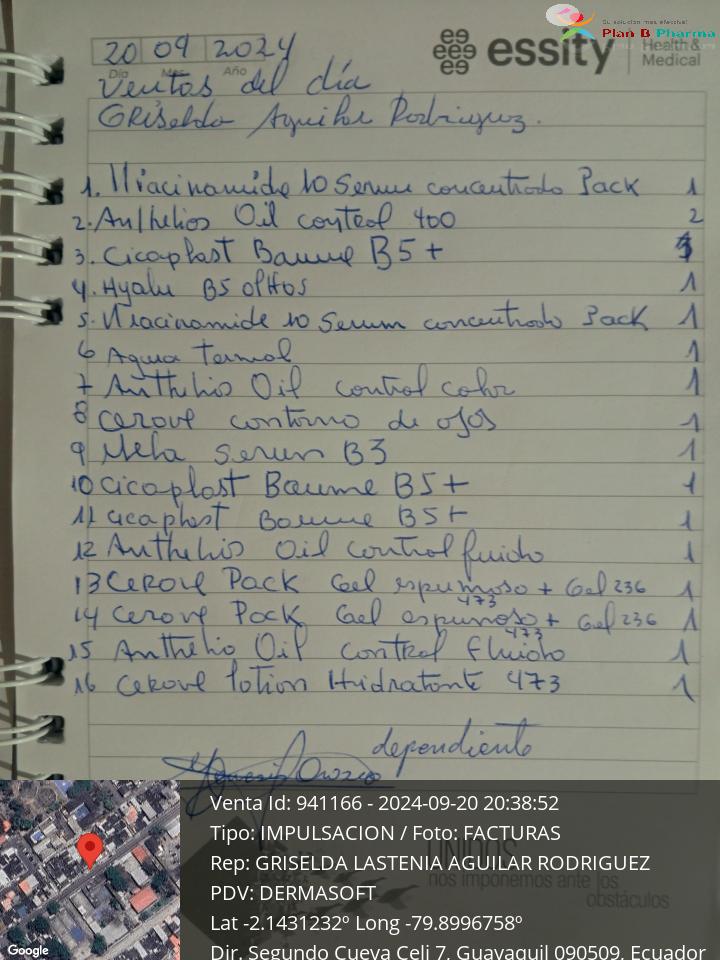 Su solución más efectiva!
Plan B Pharma
essity
Health &
Medical
20 09 2024
Día Año
Ventas del día
Griselda Aguilar Rodriguez.
1. Niacinamide 10 Serum concentrado Pack 1
2. Anthelios Oil control 400 2
3. Cicaplast Baume B5+
4. Hyalu B5 olHos 1
5. Niacinamide 10 Serum concentrado Pack 1
6 Agua Termal 1
7 Anthelio Oil control color 1
8 Cerave contorno de ojos 1
9 Mela Serum B3 1
10 Cicaplast Baume B5+ 1
11 Cicaplast Baume B5+ 1
12 Anthelio Oil control fluido 1
13 CeRave Pack Gel espumoso + Gel 236 1
473
14 Cerave Pack Gel espumoso + Gel 236 1
473
15 Anthelio Oil control Fluido 1
16 CeRave lotion Hidratante 473 1
dependiente
Orozco
Venta Id: 941166 - 2024-09-20 20:38:52
Tipo: IMPULSACION / Foto: FACTURAS
Rep: GRISELDA LASTENIA AGUILAR RODRIGUEZ
PDV: DERMASOFT
Lat -2.1431232º Long -79.8996758º
Dir. Segundo Cueva Celi 7, Guayaquil 090509, Ecuador
UNIDOS
nos imponemos ante los
obstáculos
Google